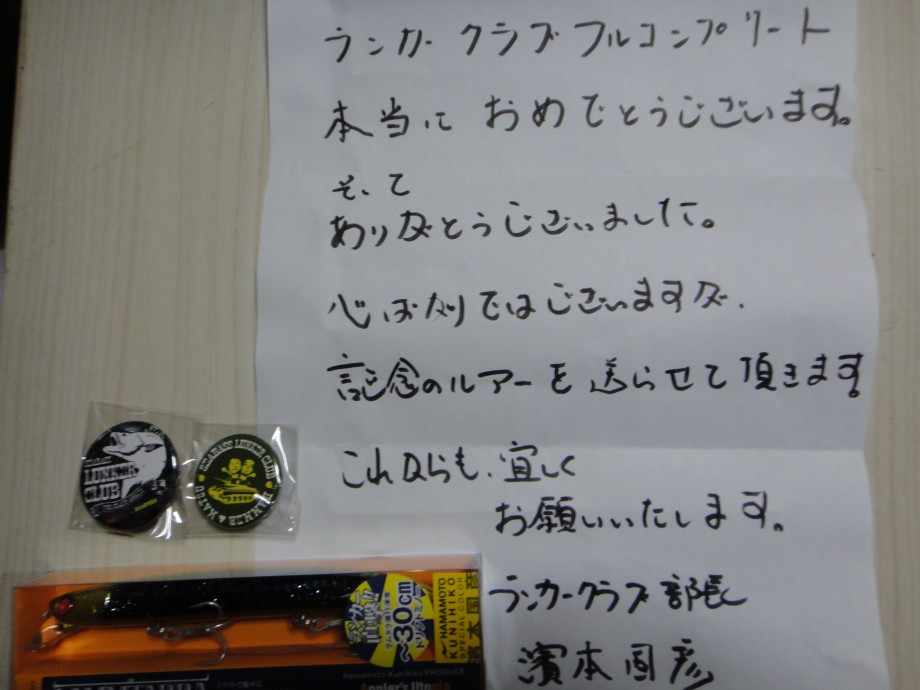 ランカークラブフルコンプリート
本当に おめでとうございます。
そして
ありがとうございました。
心ばかりではございますが、
記念のルアーを送らせて頂きます
これからも、宜しく
お願いいたします。
ランカークラブ部長
濱本国彦
LUNKER
CLUB
SEABASS LUNKER CLUB
TANNER & HATSU
ランカー
直撃!!
〜30cm
ドリフトミノー
HAMAMOTO
KUNIHIKO
SPECIAL COLOR
濱本国彦
Hamamoto Kunihiko PRODUCE
Angler's Utopia